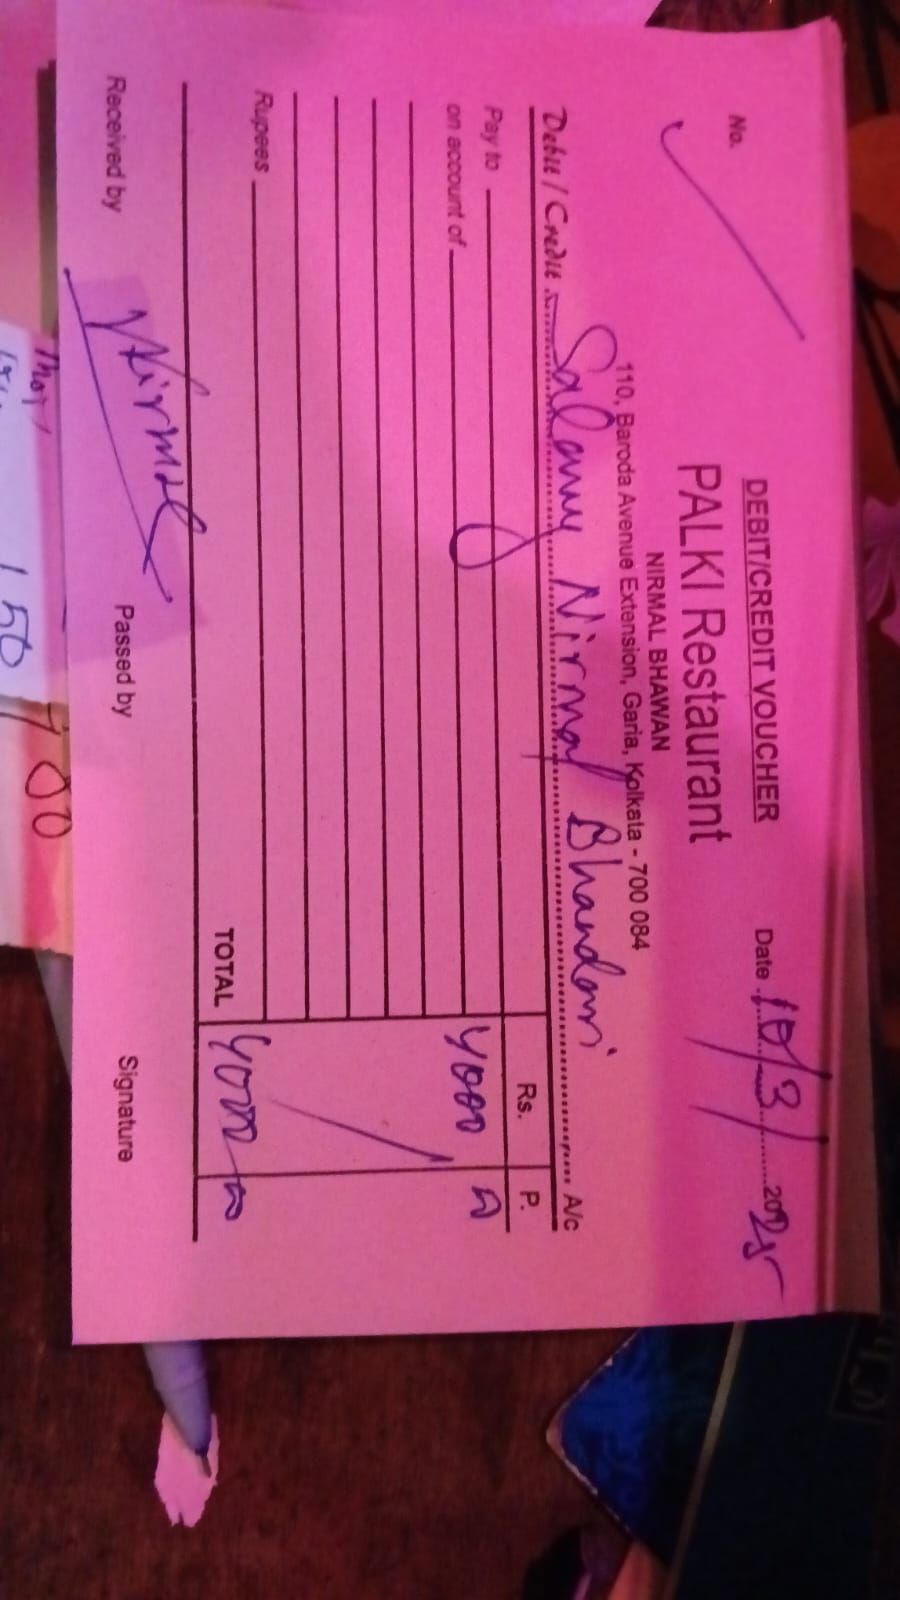 DEBIT/CREDIT VOUCHER
No.
Date 10/3/2025
PALKI Restaurant
NIRMAL BHAWAN
110, Baroda Avenue Extension, Garia, Kolkata - 700 084
Debit / Credit Salary Nirmal Bhandari A/c
Rs. P.
Pay to
on account of 4000
Rupees
TOTAL
Nirmal
Received by Passed by Signature
150